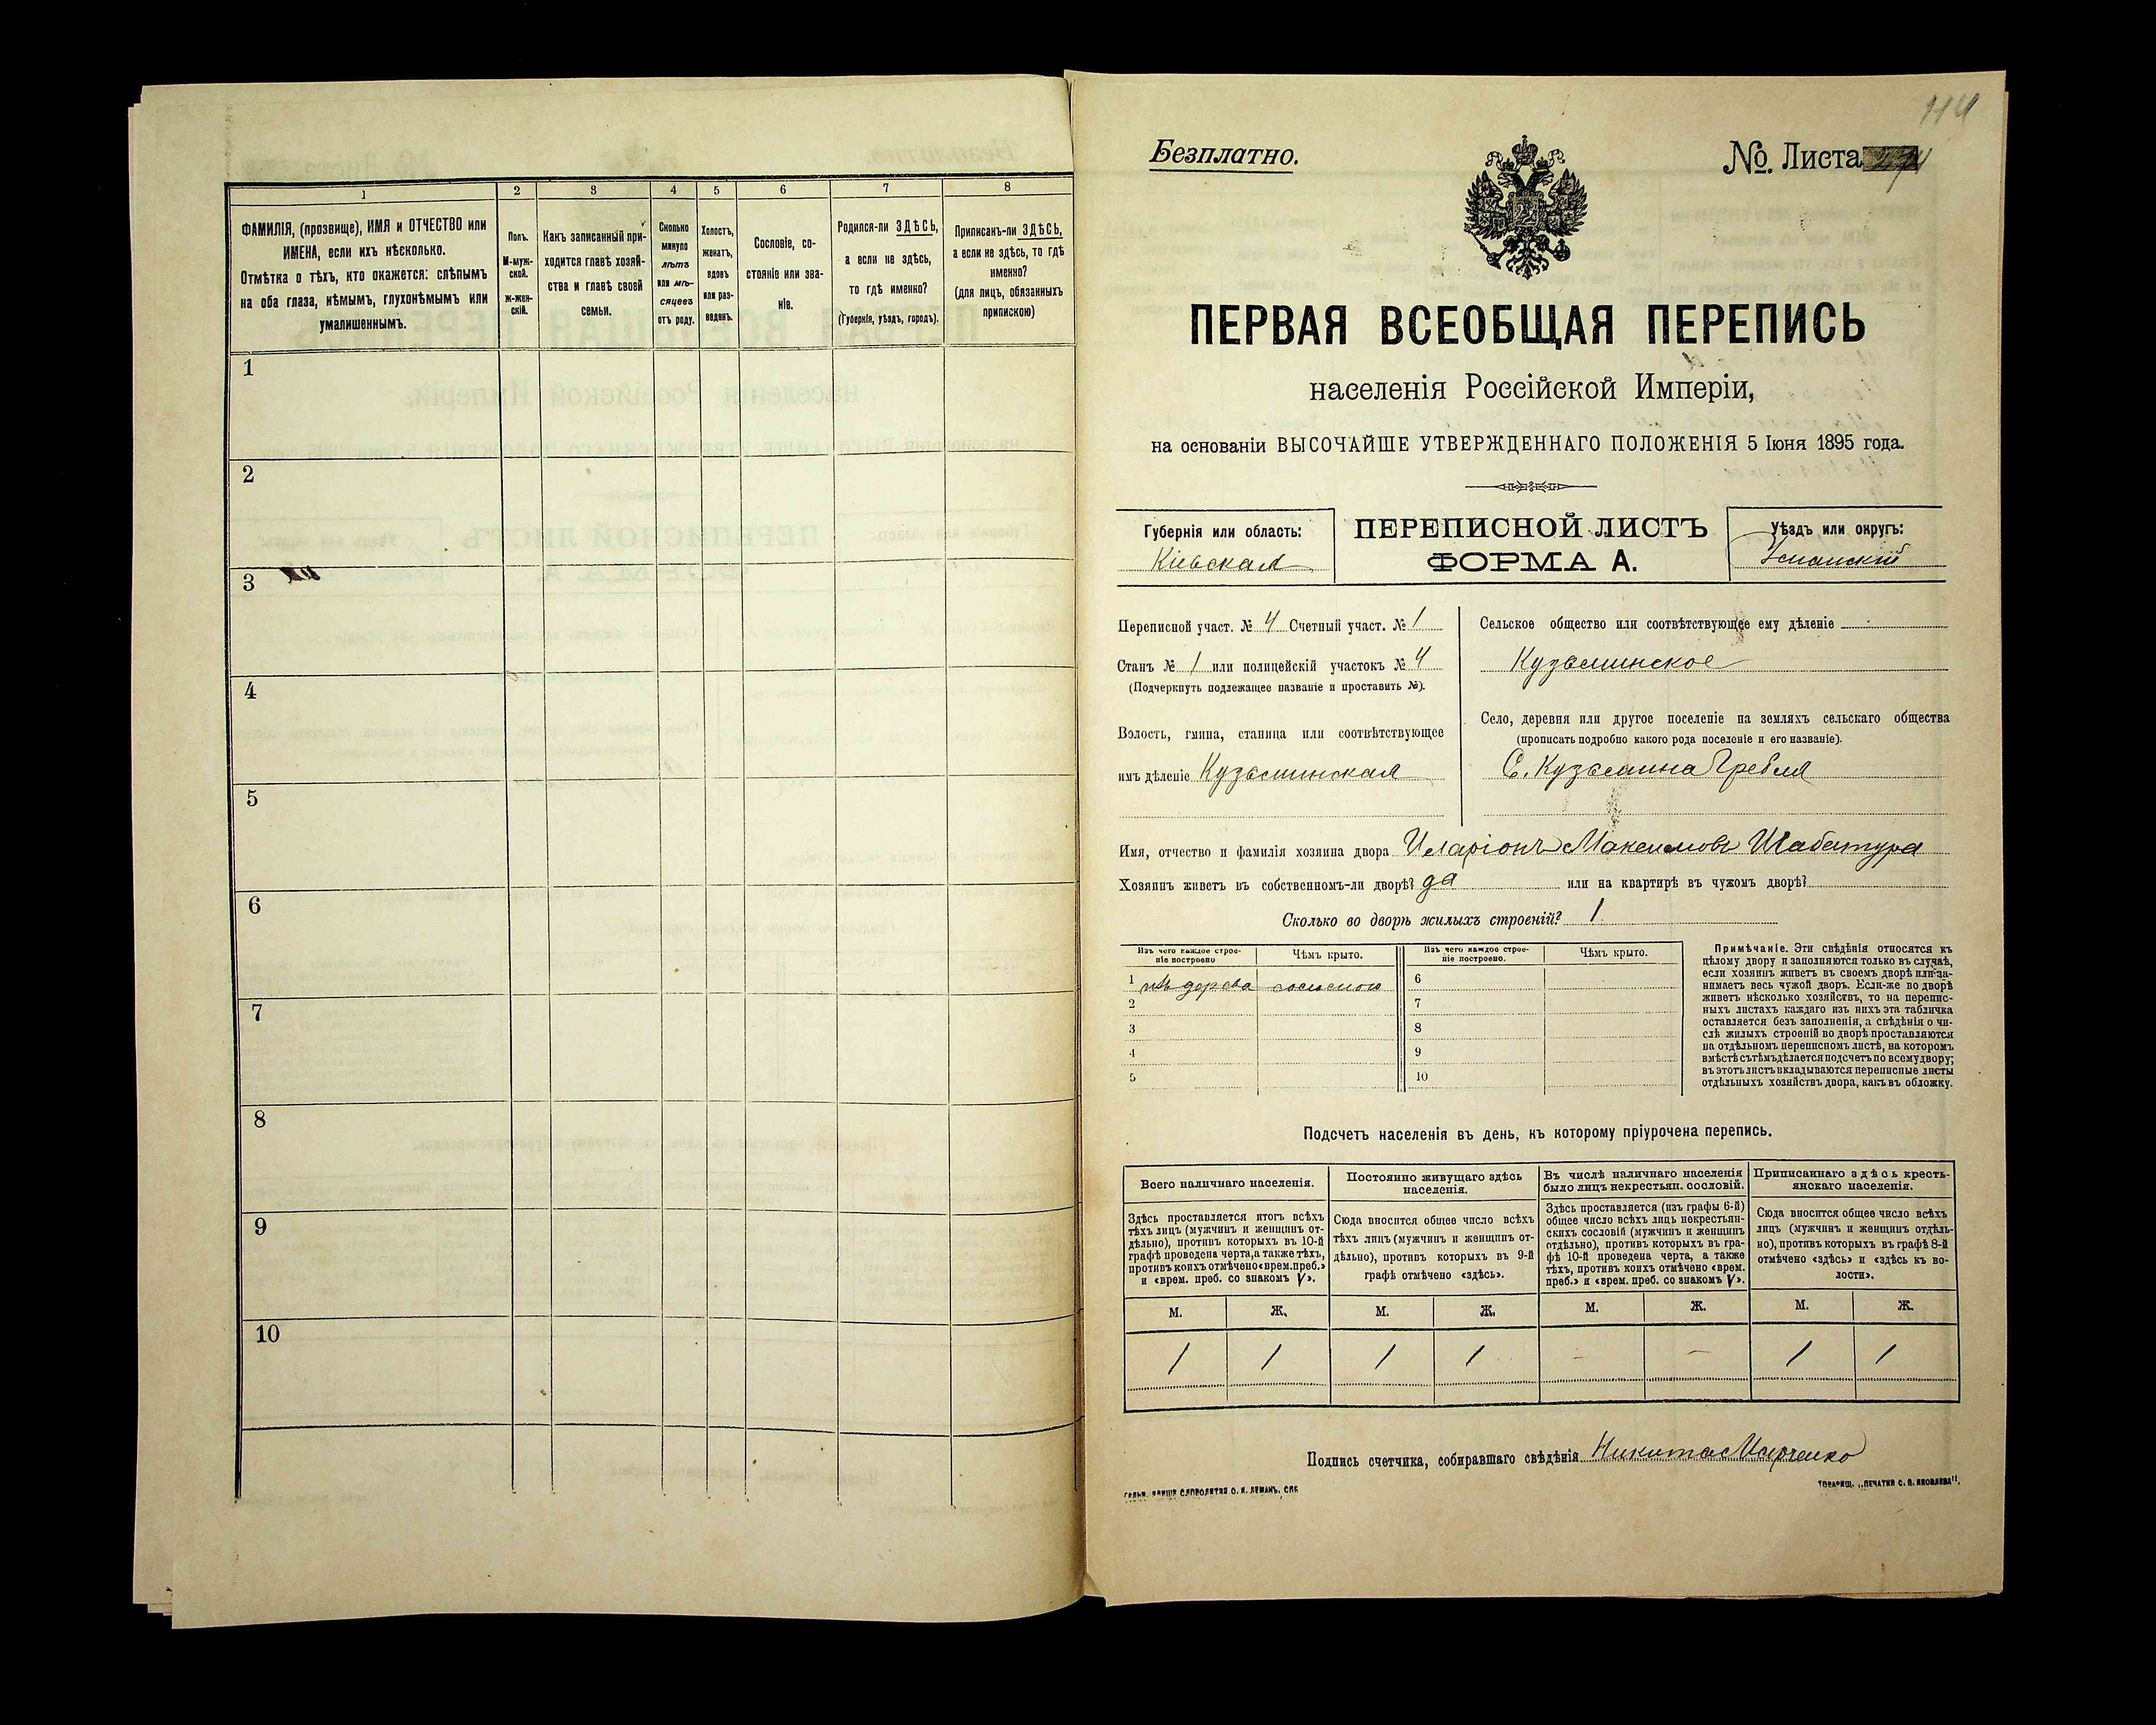 1
2
3
4
5
6
7
8
ФАМИЛІЯ, (прозвище), ИМЯ и ОТЧЕСТВО или
ИМЕНА, если ихъ нѣсколько.
Отмѣтка о тѣхъ, кто окажется: слѣпымъ
на оба глаза, нѣмымъ, глухонѣмымъ или
умалишеннымъ.
Полъ.
М-муж-
ской.
Ж-жен-
скій.
Какъ записанный при-
ходится главѣ хозяй-
ства и главѣ своей
семьи.
Сколько
минуло
лѣтъ
или мѣ-
сяцевъ
отъ роду.
Холостъ,
женатъ,
вдовъ
или раз-
веденъ.
Сословіе, со-
стояніе или зва-
ніе.
Родился-ли ЗДѢСЬ,
а если не здѣсь,
то гдѣ именно?
(Губернія, уѣздъ, городъ).
Приписанъ-ли ЗДѢСЬ,
а если не здѣсь, то гдѣ
именно?
(для лицъ, обязанныхъ
припискою)
1
2
3
4
5
6
7
8
9
10
114
Безплатно.
№. Листа
ПЕРВАЯ ВСЕОБЩАЯ ПЕРЕПИСЬ
населенія Россійской Имперіи,
на основаніи ВЫСОЧАЙШЕ УТВЕРЖДЕННАГО ПОЛОЖЕНІЯ 5 Іюня 1895 года.
Губернія или область:
Кіевская
ПЕРЕПИСНОЙ ЛИСТЪ
ФОРМА А.
Уѣздъ или округъ:
Уманскій
Переписной участ. № 4 Счетный участ. № 1
Станъ № 1 или полицейскій участокъ № 4
(Подчеркнуть подлежащее названіе и проставить №).
Волость, гмина, станица или соотвѣтствующее
имъ дѣленіе Кузьминская
Сельское общество или соотвѣтствующее ему дѣленіе
Кузьминское
Село, деревня или другое поселеніе на земляхъ сельскаго общества
(прописать подробно какого рода поселеніе и его названіе).
С. Кузьмина Гребля
Имя, отчество и фамилія хозяина двора Иларіонъ Максимовъ Шабатура
Хозяинъ живетъ въ собственномъ-ли дворѣ? да или на квартирѣ въ чужомъ дворѣ?
Сколько во дворѣ жилыхъ строеній? 1
Изъ чего каждое строе-
ніе построено
Чѣмъ крыто.
Изъ чего каждое строе-
ніе построено.
Чѣмъ крыто.
1 изъ дерева соломою
2
3
4
5
6
7
8
9
10
Примѣчаніе. Эти свѣдѣнія относятся къ
цѣлому двору и заполняются только въ случаѣ,
если хозяинъ живетъ въ своемъ дворѣ или за-
нимаетъ весь чужой дворъ. Если-же во дворѣ
живетъ нѣсколько хозяйствъ, то на перепис-
ныхъ листахъ каждаго изъ нихъ эта табличка
оставляется безъ заполненія, а свѣдѣнія о чи-
слѣ жилыхъ строеній во дворѣ проставляются
на отдѣльномъ переписномъ листѣ, на которомъ
вмѣстѣ сътѣмъ дѣлается подсчетъ по всему двору;
въ этотъ листъ вкладываются переписные листы
отдѣльныхъ хозяйствъ двора, какъ въ обложку.
Подсчетъ населенія въ день, къ которому пріурочена перепись.
Всего наличнаго населенія.
Постоянно живущаго здѣсь
населенія.
Въ числѣ наличнаго населенія
было лицъ некрестьян. сословій.
Приписаннаго здѣсь кресть-
янскаго населенія.
Здѣсь проставляется итогъ всѣхъ
тѣхъ лицъ (мужчинъ и женщинъ от-
дѣльно), противъ которыхъ въ 10-й
графѣ проведена черта, а также тѣхъ,
противъ коихъ отмѣчено «врем. преб.»
и «врем. преб. со знакомъ V».
Сюда вносится общее число всѣхъ
тѣхъ лицъ (мужчинъ и женщинъ от-
дѣльно), противъ которыхъ въ 9-й
графѣ отмѣчено «здѣсь».
Здѣсь проставляется (изъ графы 6-й)
общее число всѣхъ лицъ некрестьян-
скихъ сословій (мужчинъ и женщинъ
отдѣльно), противъ которыхъ въ гра-
фѣ 10-й проведена черта, а также
тѣхъ, противъ коихъ отмѣчено «врем.
преб.» и «врем. преб. со знакомъ V».
Сюда вносится общее число всѣхъ
лицъ (мужчинъ и женщинъ отдѣль-
но), противъ которыхъ въ графѣ 8-й
отмѣчено «здѣсь» и «здѣсь въ во-
лости».
М. Ж. М. Ж. М. Ж. М. Ж.
1 1 1 1 - - 1 1
Подпись счетчика, собиравшаго свѣдѣнія Никита Марченко
ТОВАРИЩ. „ПЕЧАТНЯ С. П. ЯКОВЛЕВА".